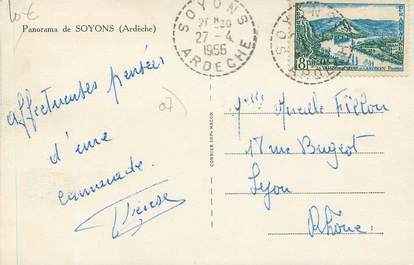 10€
Panorama de SOYONS (Ardèche)
SOYONS
27-4
1956
ARDECHE
SOYONS
ARDECHE
8F
07)
affectueuses pensées
d'une
camarade.
Thérèse
COMBIER IMP. MACON
Mlle Mireille Fillon
17 rue Bugeot
Lyon
Rhône.